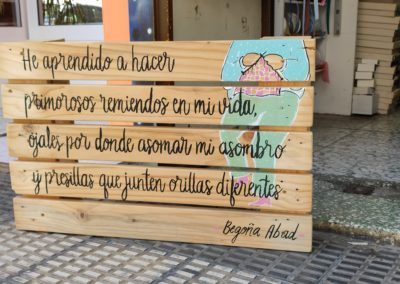 He aprendido a hacer
primorosos remiendos en mi vida,
ojales por donde asomar mi asombro
y presillas que junten orillas diferentes
Begoña Abad